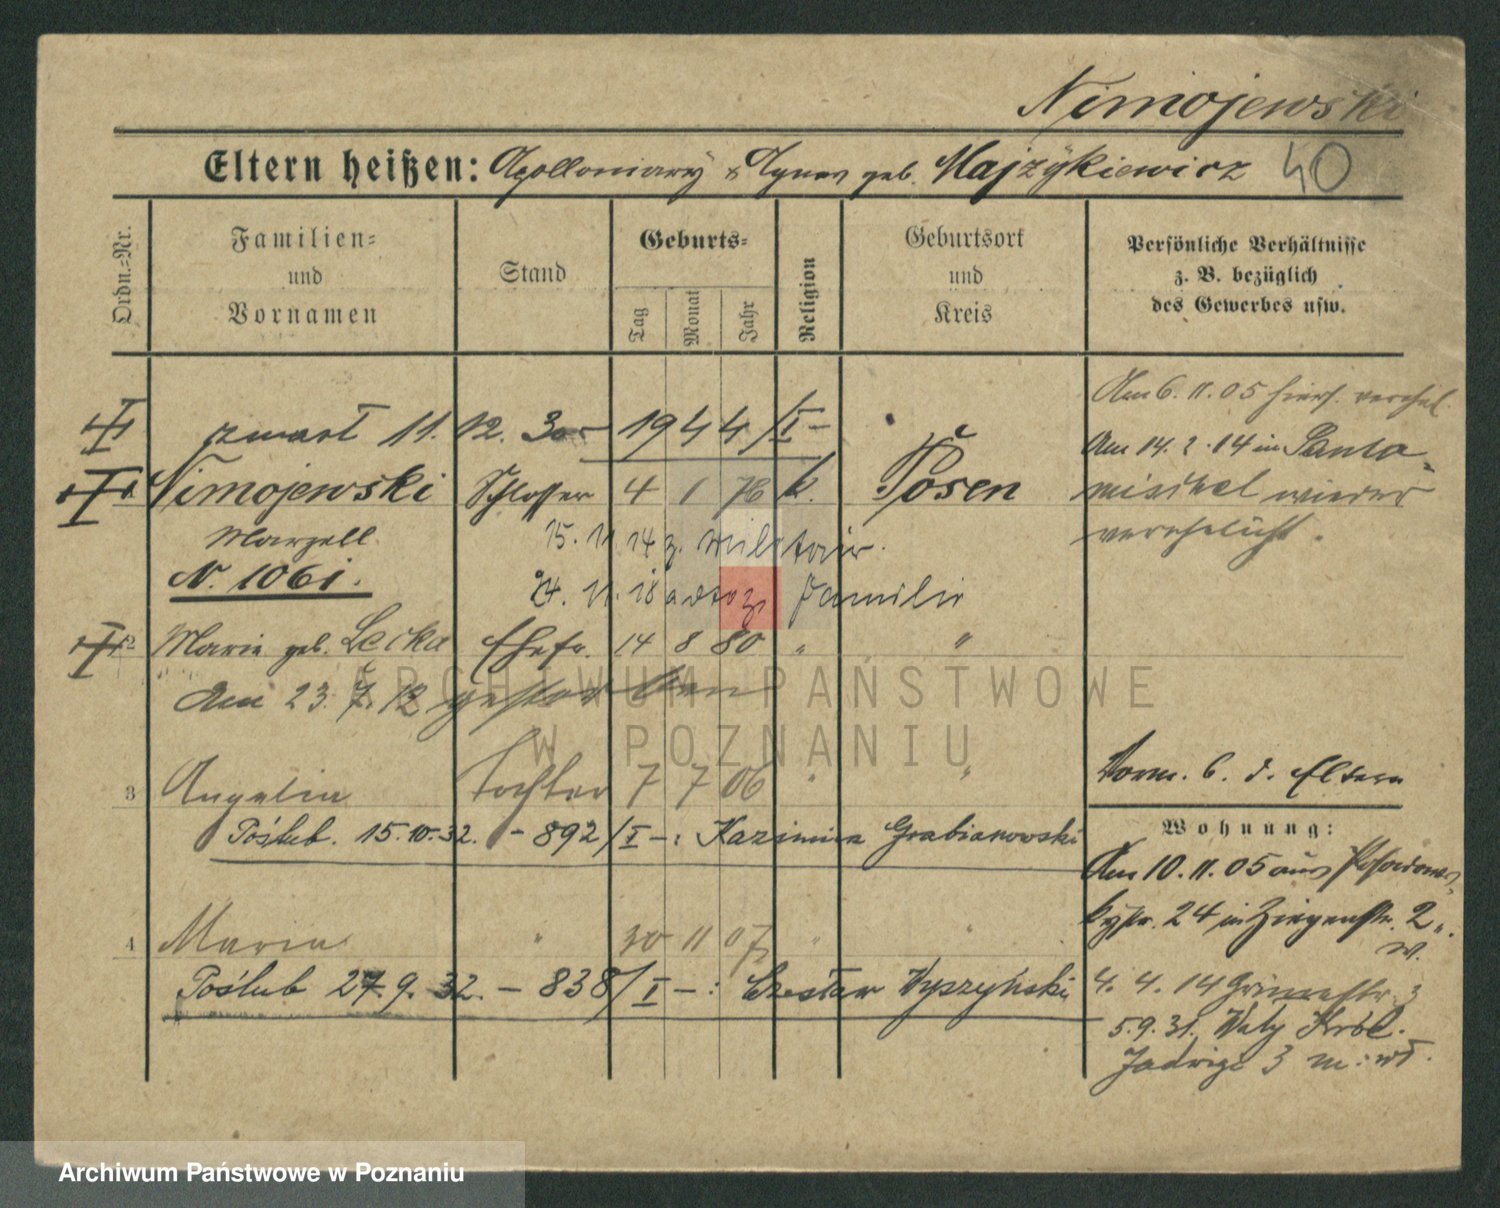 Nimojewski
Eltern heißen: Apolloniary & geb. Majzykiewicz 40
Ordn.-Nr.
Familien-
und
Vornamen
Stand
Geburts-
Tag
Monat
Jahr
Religion
Geburtsort
und
Kreis
Persönliche Verhältnisse
z. B. bezüglich
des Gewerbes usw.
Am 6. 11. 05 hiers. verehel.
zmarł 11. 12. 1944/I –
Am 14. 2. 14 in
Nimojewski Schlosser 4 1 76 k. Posen
wieder
verehelicht.
Marzell
15. 11. 14 z. Militair.
N. 1061.
24. 11. 18 Familie
2 Marie geb. Lecka Ehefr. 14 8 80 " "
Am 23. 7. 12 gestorben
3 Angelia Tochter 7 7 06 " "
Vorm. b. d. Eltern
Wohnung:
Poślub. 15.10.32. – 892/I –: Kazimira Grabianowski
Am 10. 11. 05 aus
24 in Ziegenstr. 2
w.
4 Maria " 30 11 07 " "
Poślub 27.9. 32. – 838/I –: Czesław Wyszyński
4. 4. 14 3
5.9.31. Wały
Jadwigi 3 m: wł.
ARCHIWUM PAŃSTWOWE
W POZNANIU
Archiwum Państwowe w Poznaniu